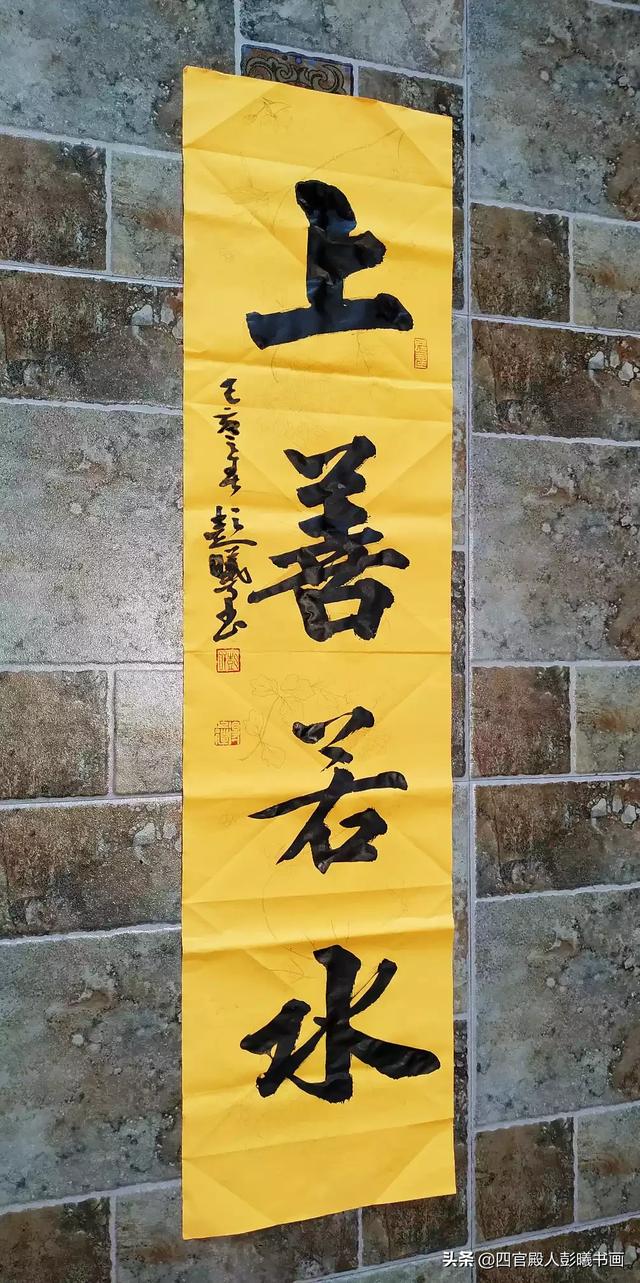 上善若水
己亥之春 彭曦书
头条 @四官殿人彭曦书画